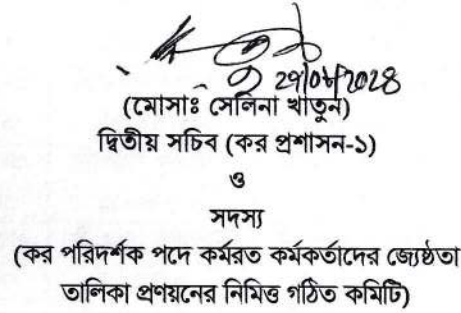 (মোসাঃ সেলিনা খাতুন)
দ্বিতীয় সচিব (কর প্রশাসন-১)
ও
সদস্য
(কর পরিদর্শক পদে কর্মরত কর্মকর্তাদের জ্যেষ্ঠতা
তালিকা প্রণয়নের নিমিত্ত গঠিত কমিটি)